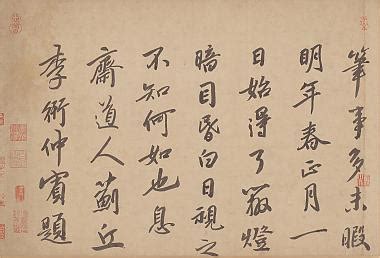 筆事多未暇
明年春正月一
日始得了縱燈
暗目昏白日視之
不知何如也息
齋道人薊丘
李衎仲賓題